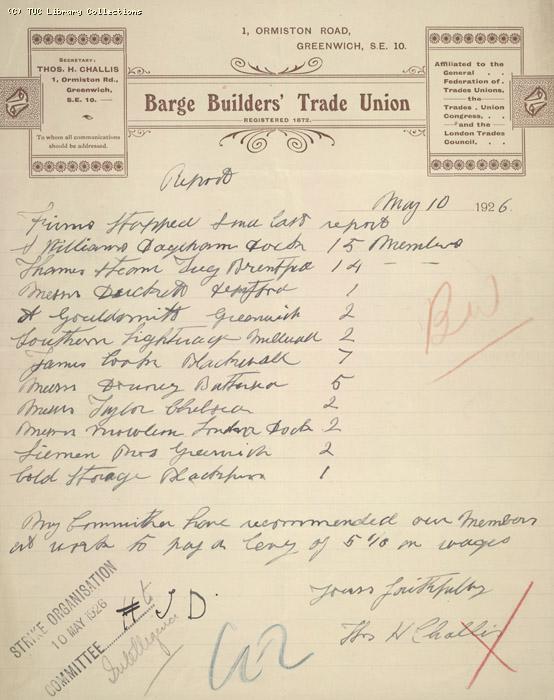 (C) TUC Library Collections
1, ORMISTON ROAD,
GREENWICH, S.E. 10.
SECRETARY:
THOS. H. CHALLIS
1, Ormiston Rd.,
Greenwich,
S.E. 10.
To whom all communications
should be addressed.
Barge Builders' Trade Union
REGISTERED 1872.
Affiliated to the
General . .
Federation of .
Trades Unions,
the
Trades . Union
Congress, . .
and the
London Trades
Council, . .
Report
May 10 1926.
Firms Stopped Since last report
J Williams Dagenham Dock 15 Members
Thames Steam Tug Brentford 14 — —
Messrs Duckett Deptford 1
A Gouldsmith Greenwich 2
Southern Lighterage Millwall 2
James Cook Blackwall 7
Messrs Battersea 5
Messrs Taylor Chelsea 2
Messrs Mowlem London Dock 2
Siemen Bros Greenwich 2
Cold Storage 1
My Committee have recommended our Members
at work to pay a levy of 5% on wages
Yours faithfully
Thos H Challis
BW
STRIKE ORGANISATION
10 MAY 1926
COMMITTEE
J D.
Intelligence